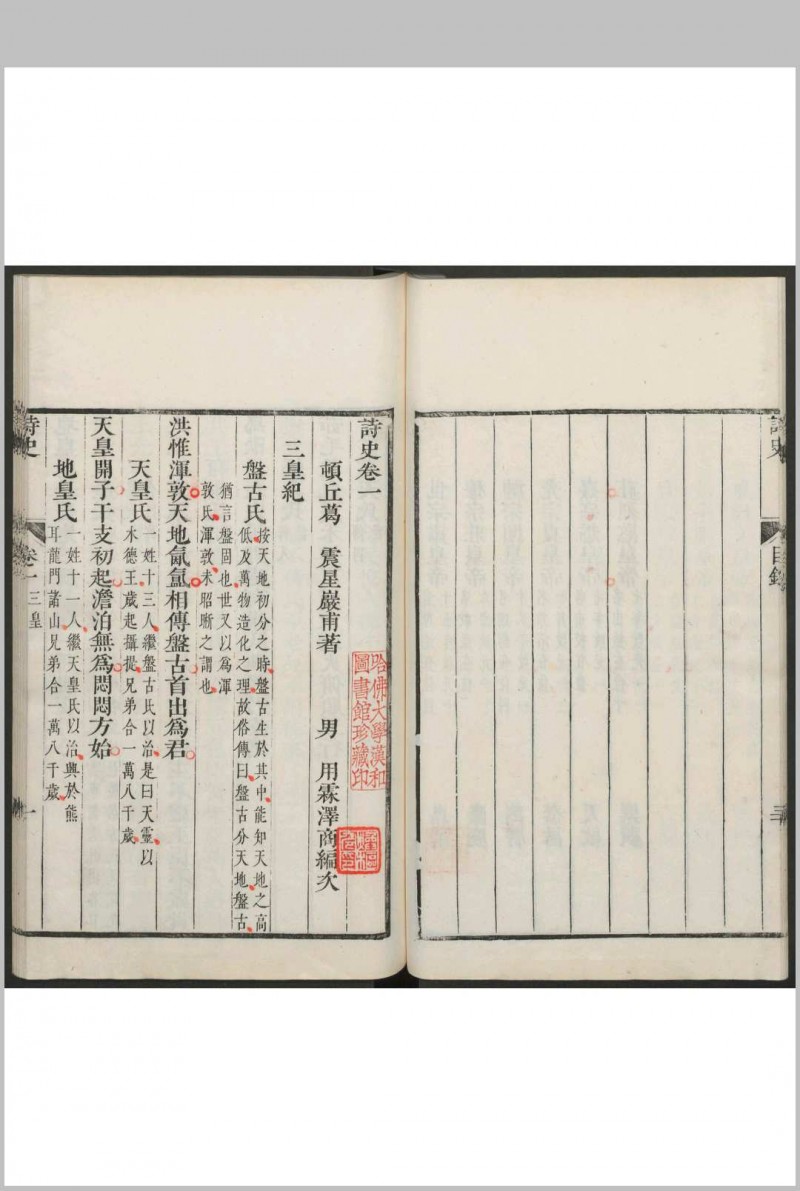 詩史
目錄
三
詩史卷一
頓丘葛 震星巖甫著 男 用霖澤商編次
哈佛大學漢和
圖書館珍藏印
三皇紀
盤古氏
按天地初分之時盤古生於其中能知天地之高
低及萬物造化之理故俗傳曰盤古分天地盤古
猶言盤固也世又以為渾
敦氏渾敦未昭晰之謂也
洪惟渾敦天地氤氳相傳盤古首出為君
天皇氏
一姓十三人繼盤古氏以治是曰天靈以
木德王歲起攝提兄弟合一萬八千歲
天皇開子干支初起澹泊無為悶悶方始
地皇氏
一姓十一人繼天皇氏以治興於熊
耳龍門諸山兄弟合一萬八千歲
詩史
卷一
三皇
一